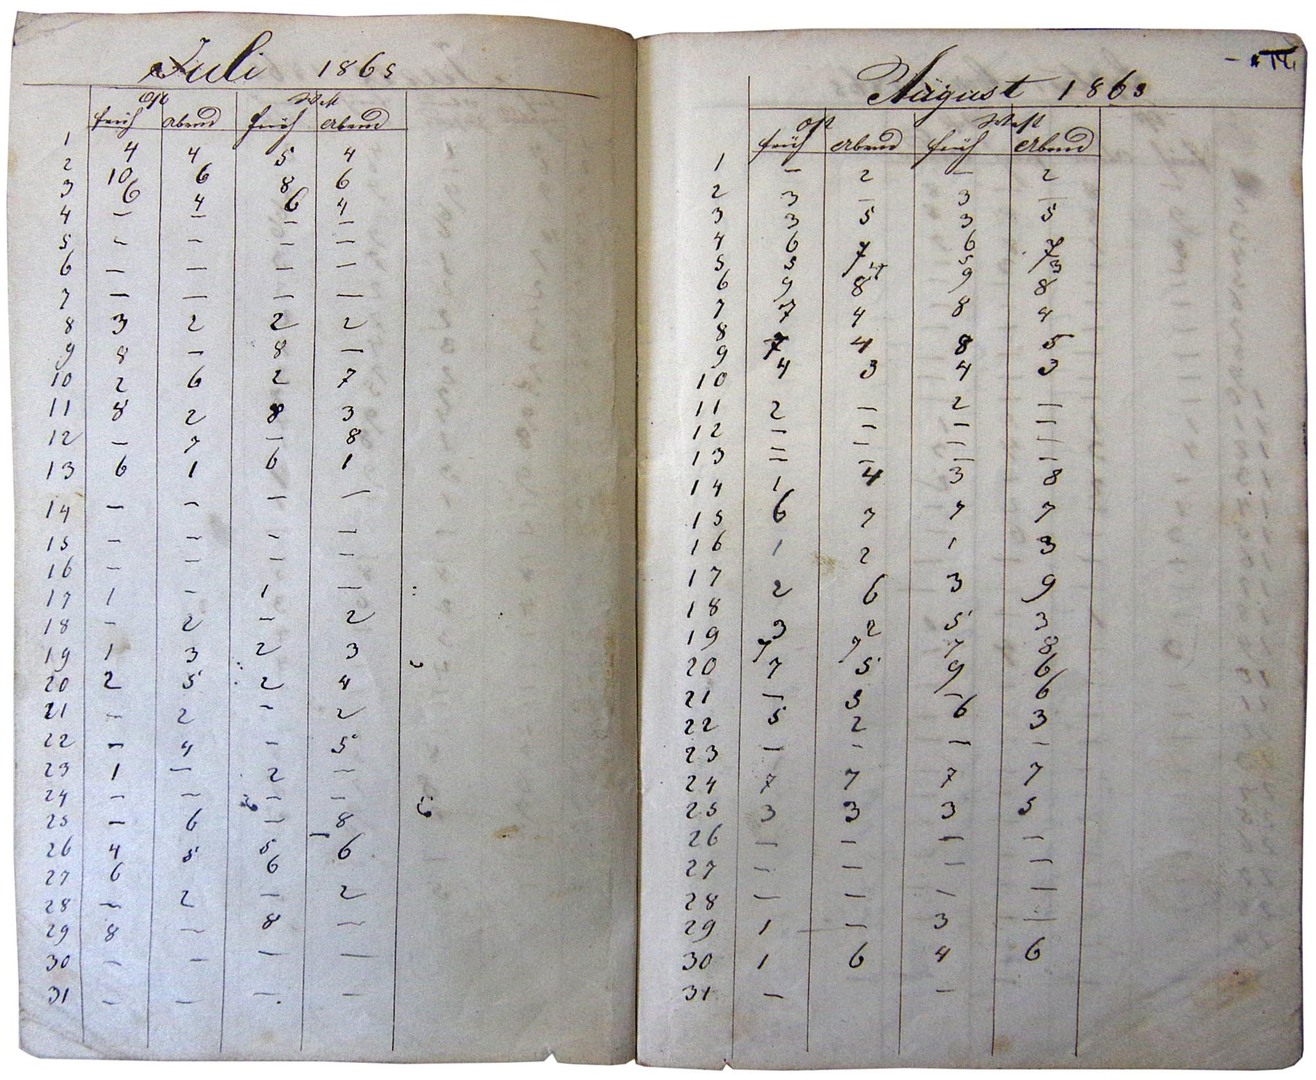 Juli 1865
Ost West
früh Abend früh Abend
1 4 4 5 4
2 10 6 8 6
3 6 4 6 4
4 – – – –
5 – – – –
6 – – – –
7 – – – –
8 3 2 2 2
9 8 – 8 –
10 2 6 2 7
11 8 2 8 3
12 – 7 – 8
13 6 1 6 1
14 – – – –
15 – – – –
16 – – – –
17 1 – 1 –
18 – 2 – 2
19 1 3 2 3
20 2 5 2 4
21 – 2 – 2
22 – 4 – 5
23 1 – 2 –
24 – – – –
25 – 6 – 8
26 4 5 5 6
27 6 6
28 – 2 – 2
29 8 – 8 –
30 – – – –
31 – – – –
August 1865
Ost West
früh Abend früh Abend
1 – 2 – 2
2 3 – 3 –
3 3 5 3 5
4 6 7 6 7
5 5 5 3
6 9 8 9 8
7 7 4 8 4
8 7 4 8 5
9 4 3 4 3
10 2 – 2 –
11 – – – –
12 – – – –
13 – 4 3 8
14 1
15 6 7 7 7
16 1 2 1 3
17 2 6 3 9
18 3 2 5 3
19 7 7 7 8
20 7 5 9 6
21 – 3 – 6
22 5 2 6 3
23 – – – –
24 7 7 7 7
25 3 3 3 5
26 – – – –
27 – – – –
28 – – – –
29 1 – 3 –
30 1 6 4 6
31 – –